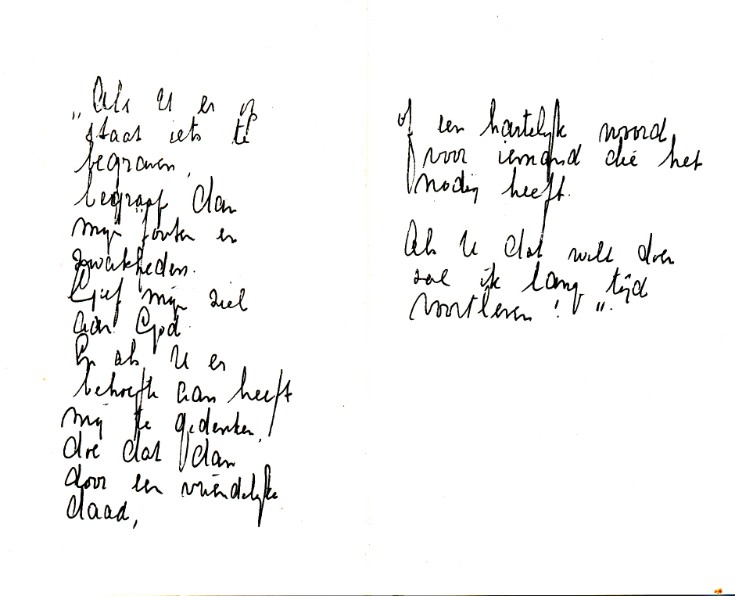 „Als U er op
staat iets te
begraven,
begraaf dan
mijn fouten en
zwakheden.
Geef mijn ziel
aan God.
En als U er
behoefte aan heeft
mij te gedenken,
doe dat dan
door een vriendelijke
daad,
of een hartelijk woord
voor iemand die het
nodig heeft.
Als U dat wilt doen
zal ik lang tijd
voortleven! ".